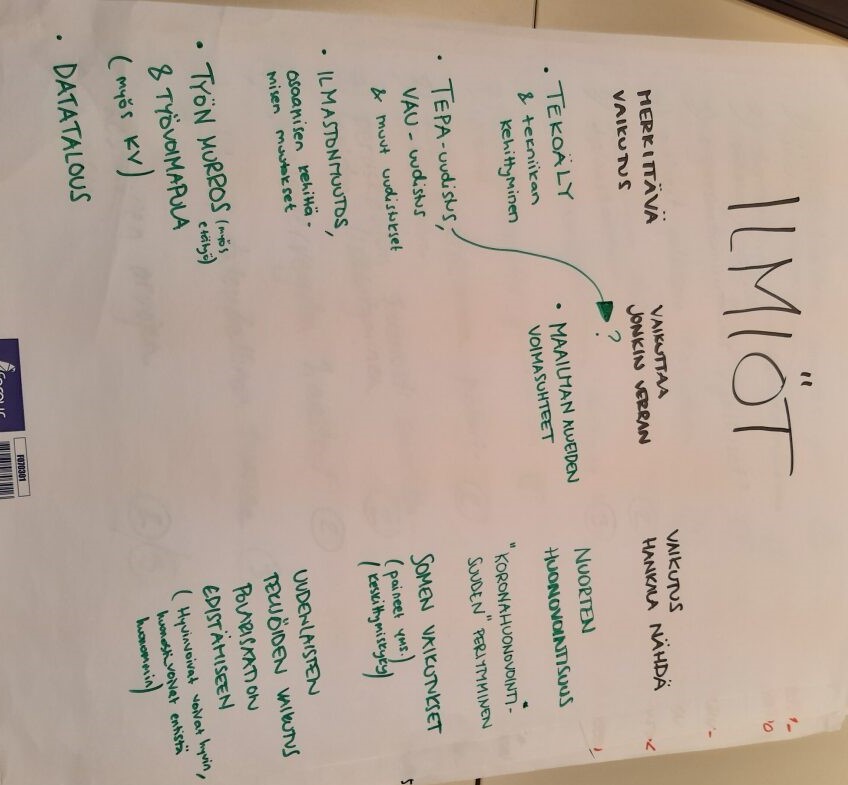 ILMIÖT
MERKITTÄVÄ
VAIKUTUS
• TEKOÄLY
& tekniikan
kehittyminen
• TEPA-uudistus,
VAU-uudistus
& muut uudistukset
• ILMASTONMUUTOS,
osaamisen kehittä-
misen muutokset
• TYÖN MURROS (myös
etätyö)
& TYÖVOIMAPULA
(myös KV)
• DATATALOUS
VAIKUTTAA
JONKIN VERRAN
?
• MAAILMAN ALUEIDEN
VOIMASUHTEET
VAIKUTUS
HANKALA NÄHDÄ
NUORTEN
HUONOVOINTISUUS
"KORONAHUONOVOINTI-
SUUDEN" PERIYTYMINEN
SOMEN VAIKUTUKSET
(paineet yms.)
(keskittymiskyky)
UUDENLAISTEN
TEKIJÖIDEN VAIKUTUS
POLARISAATION
EDISTÄMISEEN
(Hyvinvoivat voivat hyvin,
huonostivoivat entistä
huonommin)
F070301